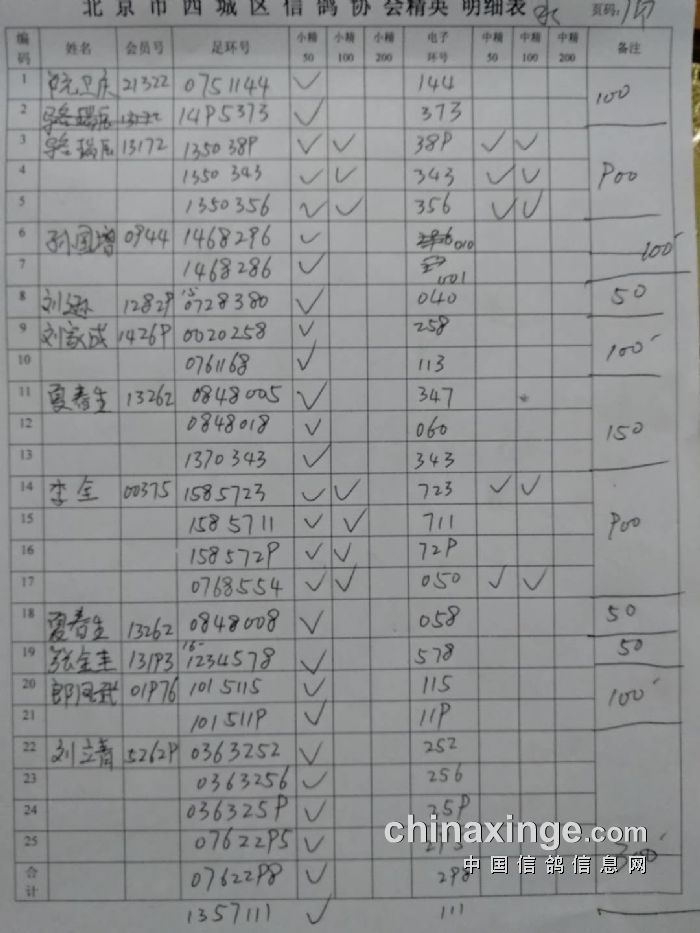 北京市西城区信鸽协会精英 明细表 页码:
编码 姓名 会员号 足环号 小精50 小精100 小精200 电子环号 中精50 中精100 中精200 备注
1 21322 0751144 ✓ 144
100
2 14P5373 ✓ 373
3 骆瑞辰 13172 135038P ✓ ✓ 38P ✓ ✓
4 1350343 ✓ ✓ 343 ✓ ✓ P00
5 1350356 ✓ ✓ 356 ✓ ✓
6 孙国增 0944 1468296 ✓ 010 100
7 1468286 ✓ 001
8 1282P 15- 0728380 ✓ 040 50
9 刘家成 1426P 0020258 ✓ 258
100
10 0761168 ✓ 113
11 夏春生 13262 0848005 ✓ 347
12 0848018 ✓ 060 150
13 1370343 ✓ 343
14 李全 00375 1585723 ✓ ✓ 723 ✓ ✓
15 1585711 ✓ ✓ 711 P00
16 158572P ✓ ✓ 72P
17 0768554 ✓ ✓ 050 ✓ ✓
18 夏春生 13262 0848008 ✓ 058 50
19 131P3 15- 1234578 ✓ 578 50
20 郎凤武 01P76 1015115 ✓ 115
100
21 101511P ✓ 11P
22 刘立青 5262P 0363252 ✓ 252
23 0363256 ✓ 256
24 036325P ✓ 25P
25 07622P5 ✓
chinaxinge.com
中国信鸽信息网
合计 07622P8 ✓ 298
1357111 ✓ 111